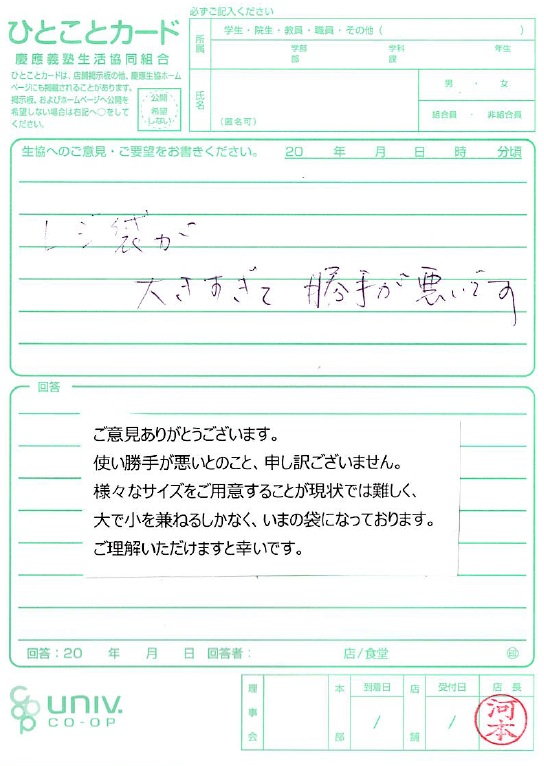 ひとことカード
慶應義塾生活協同組合
ひとことカードは、店舗掲示板の他、慶應生協ホーム
ページにも掲載されることがあります。
掲示板、およびホームページへ公開を
希望しない場合は右記へ○をして
ください。
公開
希望
しない
必ずご記入ください
所属
学生・院生・教員・職員・その他 ( )
学部 学科 年生
部 課
氏名
(匿名可)
男 ・ 女
組合員 ・ 非組合員
生協へのご意見・ご要望をお書きください。 20 年 月 日 時 分頃
レジ袋が
大きすぎて 勝手が悪いです
回答
ご意見ありがとうございます。
使い勝手が悪いとのこと、申し訳ございません。
様々なサイズをご用意することが現状では難しく、
大で小を兼ねるしかなく、いまの袋になっております。
ご理解いただけますと幸いです。
回答:20 年 月 日 回答者: 店/食堂 ㊞
coop UNIV.
CO-OP
理事会
本部
到着日
/
店舗
受付日
/
店長
河本